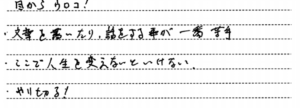 目からウロコ!
・文章を書いたり、話をする事が一番苦手
・ここで人生を変えないといけない。
・やりきる!